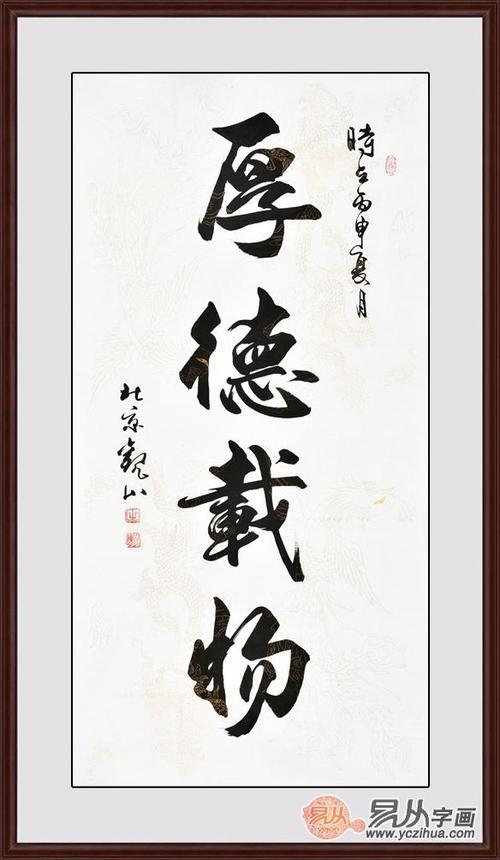 時在丙申夏月
厚德載物
北京觀山
易从
易从字画
www.yczihua.com